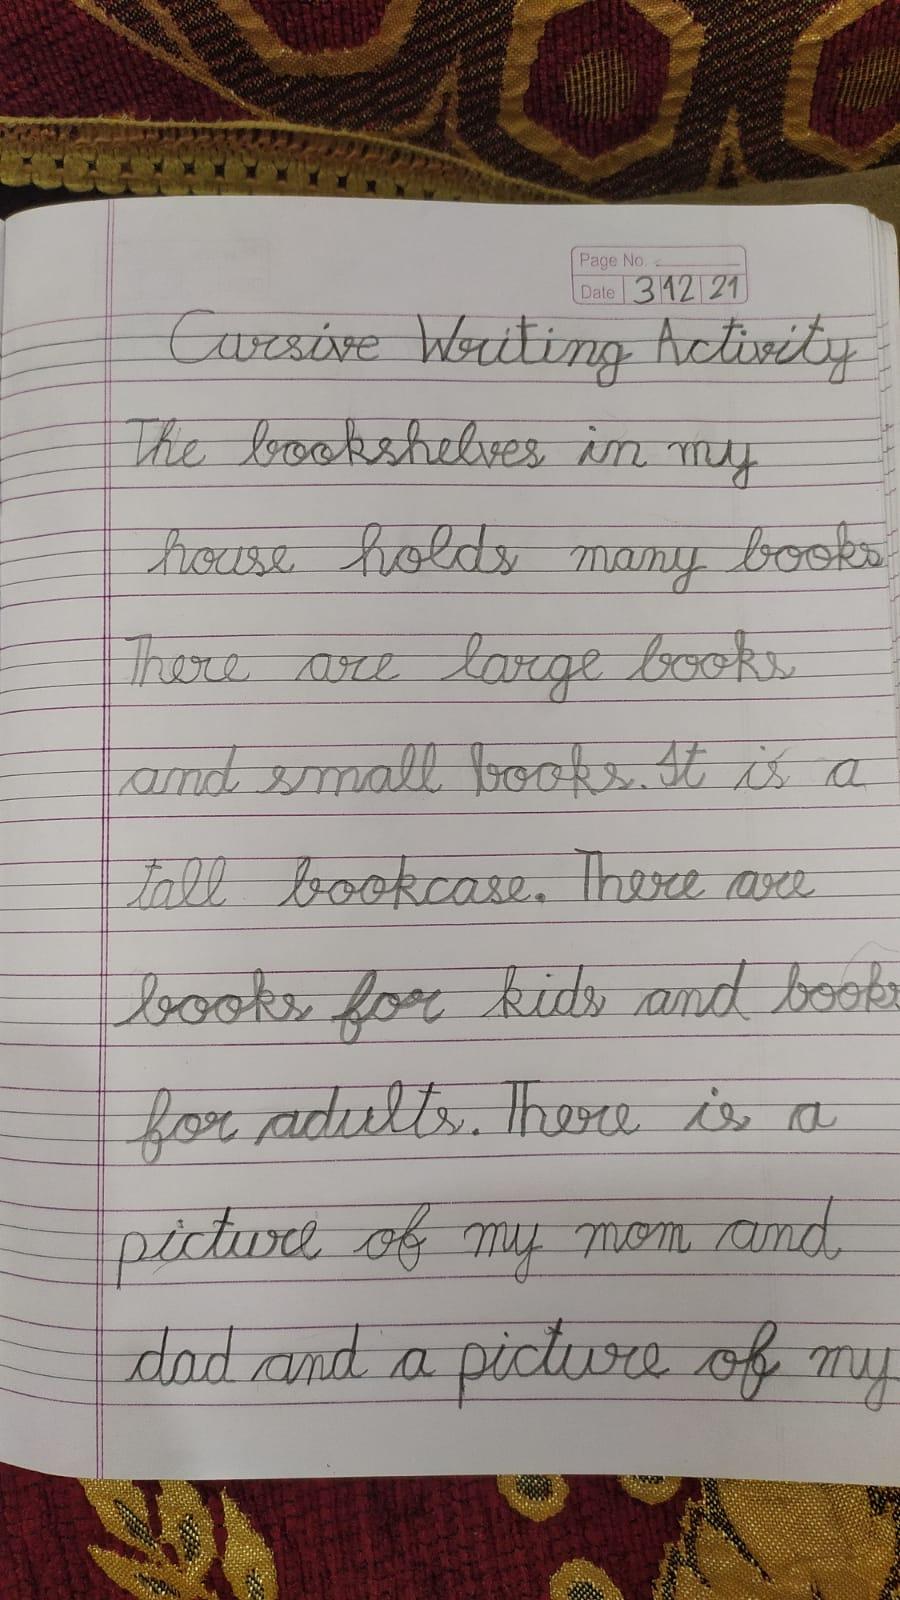 Page No.
Date 3 12 21
Cursive Writing Activity
The bookshelves in my
house holds many books
There are large books
and small books. It is a
tall bookcase. There are
books for kids and books
for adults. There is a
picture of my mom and
dad and a picture of my